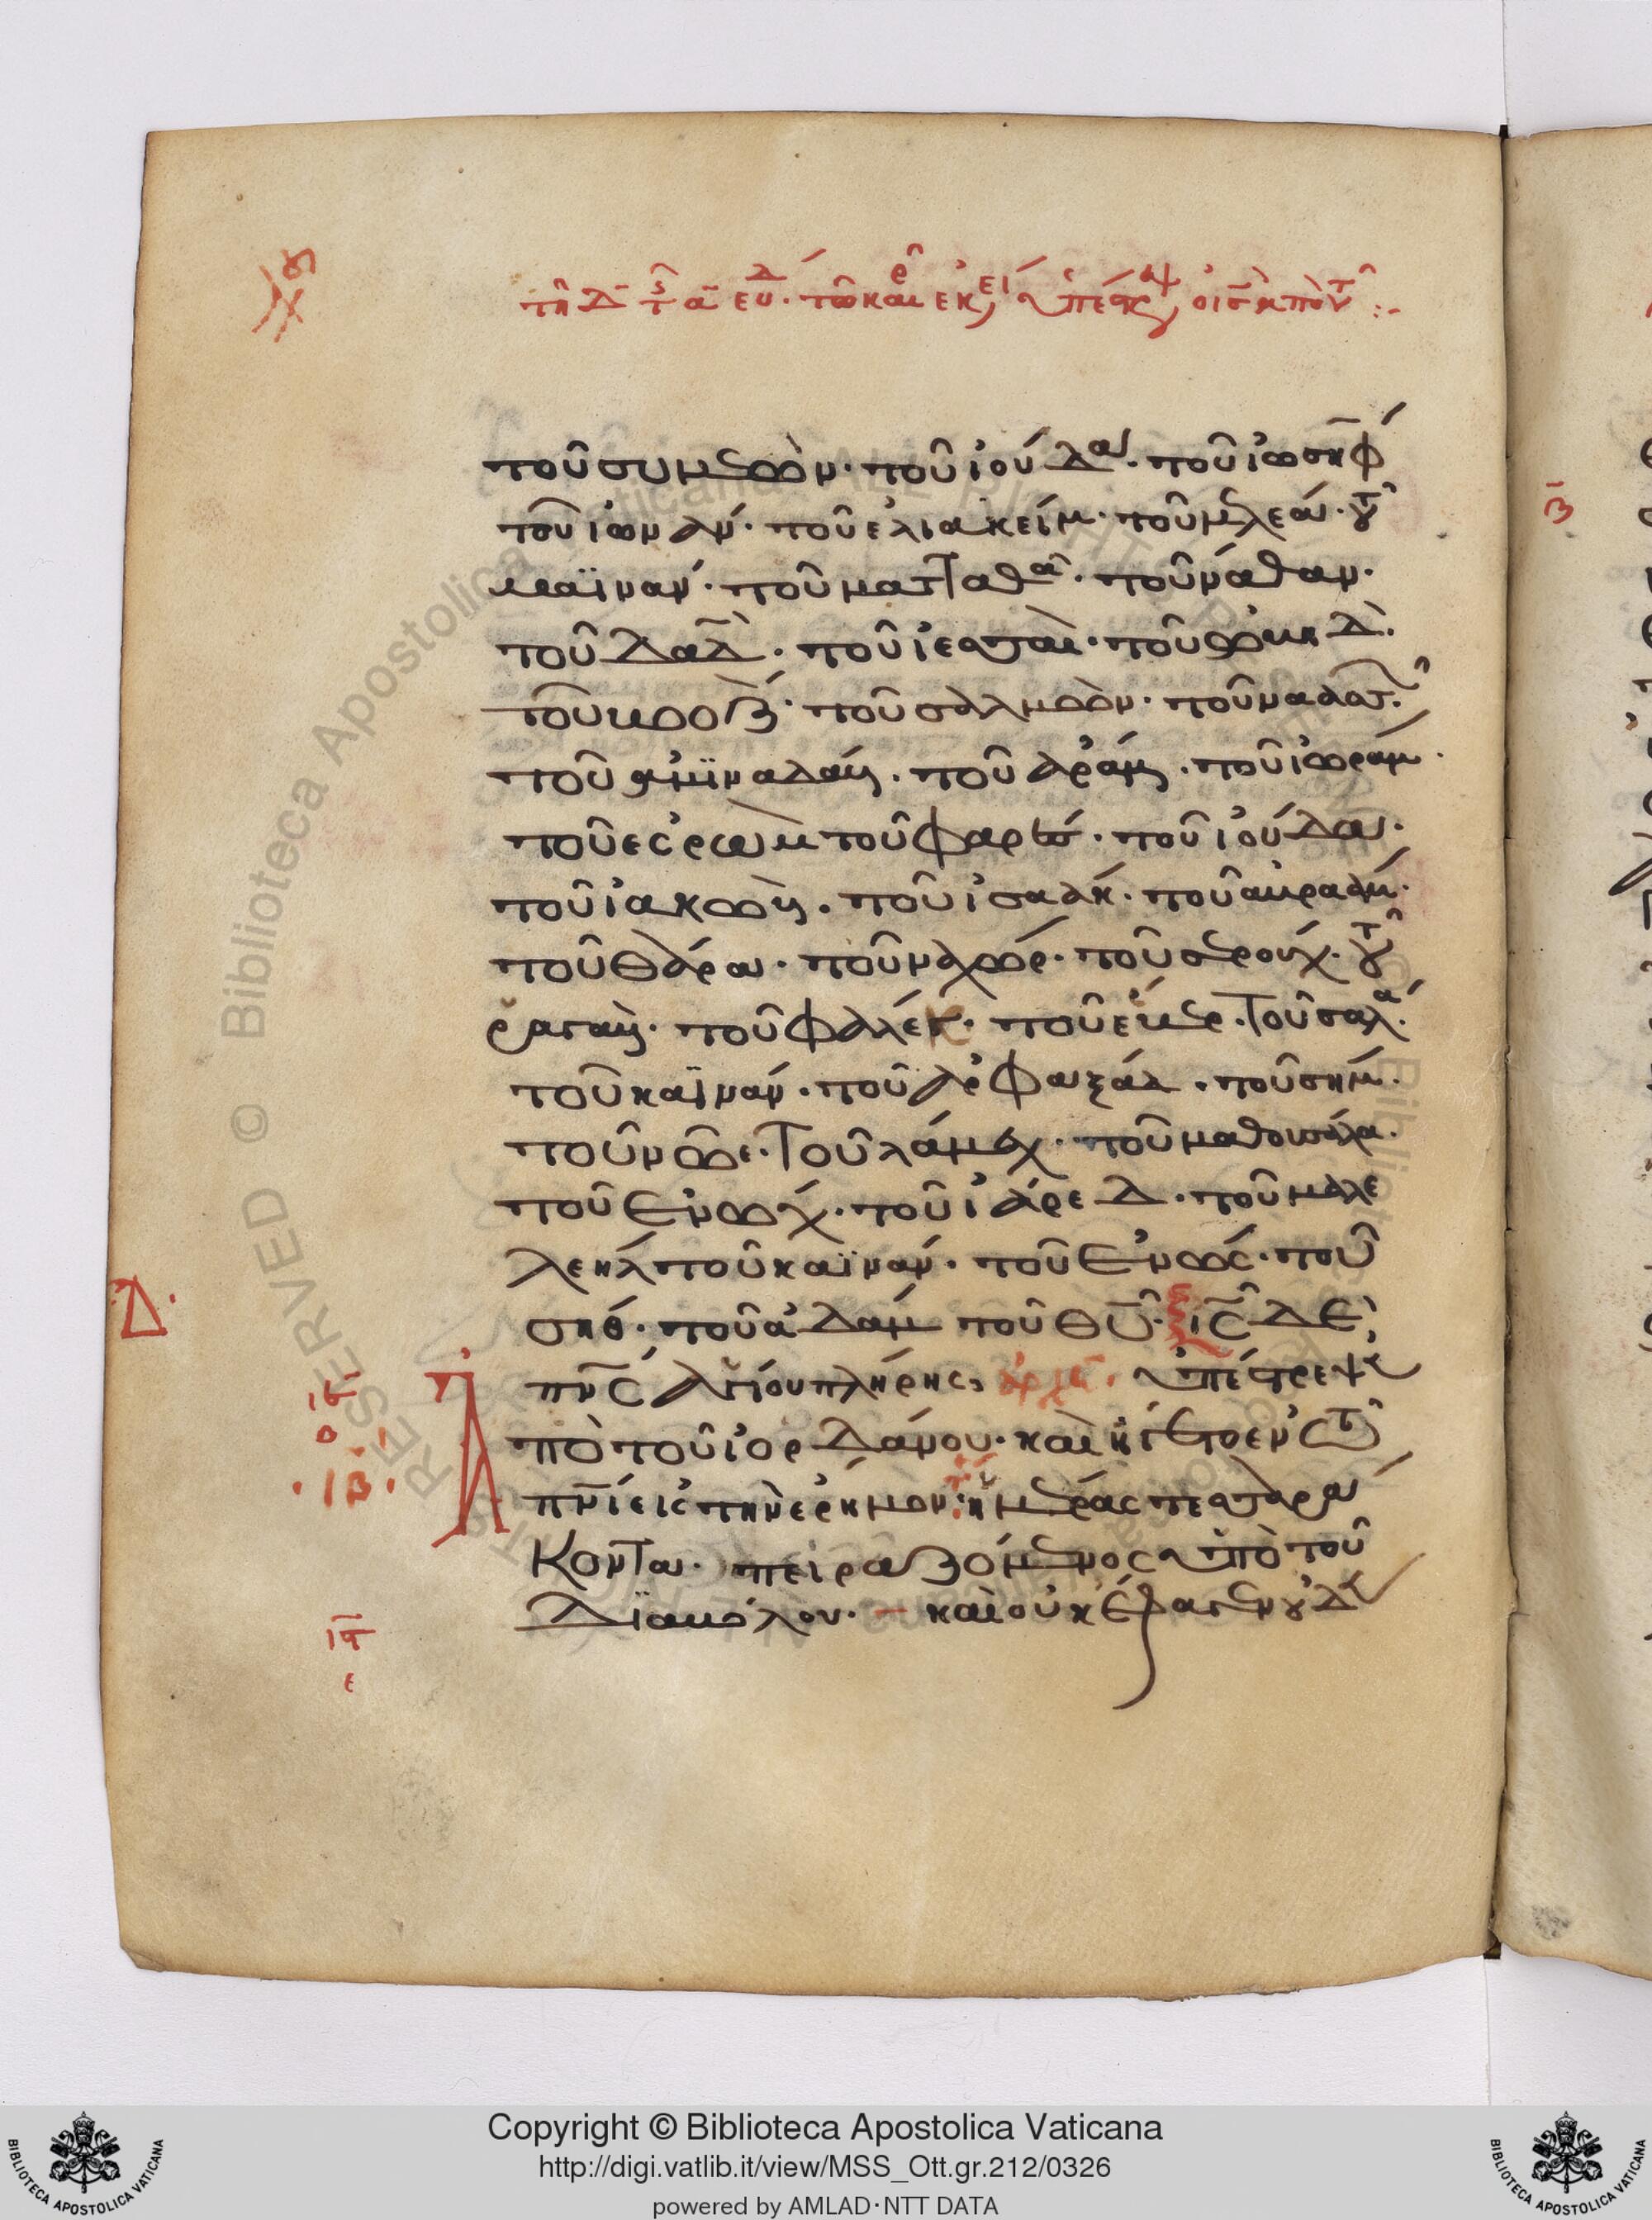 τῆ δ τ α ευ. τῶ καιρ εκει υπέστρεψ ο ισ εκ πν τ :-
τοῦ συμεὼν· τοῦ ἰούδα· τοῦ ἰωσὴφ
τοῦ ἰωνάν· τοῦ ἐλιακείμ· τοῦ μελεά· τοῦ
μαϊνάν· τοῦ ματταθὰ· τοῦ νάθαν·
τοῦ δαδ· τοῦ ἰεσσαὶ· τοῦ ὠβὴδ·
τοῦ βοὸζ· τοῦ σαλμὼν· τοῦ ναασσ·
τοῦ ἀμϊναδάβ· τοῦ ἀράμ· τοῦ ἰωράμ·
τοῦ ἐσρὼμ τοῦ φαρές· τοῦ ἰούδα·
τοῦ ἰακὼβ· τοῦ ἰσαάκ· τοῦ ἀβραάμ·
τοῦ θάρα· τοῦ ναχώρ· τοῦ σερούχ· τοῦ
ῥαγαῦ· τοῦ φαλέκ· τοῦ ἔβερ· τοῦ σαλά·
τοῦ καϊνάν· τοῦ ἀρφαξάδ· τοῦ σήμ·
τοῦ νῶε· τοῦ λάμεχ· τοῦ μαθουσάλα·
τοῦ ἐνώχ· τοῦ ἰάρεδ· τοῦ μαλε
λεήλ τοῦ καϊνάν· τοῦ ἐνώς· τοῦ
σήθ· τοῦ ἀδάμ τοῦ θυ· ις δὲ
πνς ἁγίου πλήρης, ἀρχ. ὑπέστρεψε
ἀπὸ τοῦ ἰορδάνου· καὶ ἤγετο ἐν τῶ
πνι εἰς τὴν ἔρημον· ἡμέρας τεσσαρά
κοντα· πειραζόμενος ὑπὸ τοῦ
διαβόλου· – καὶ οὐκ ἔφαγεν οὐδὲ
Δ·
ιε
·ιβ·
ις
ε
Copyright © Biblioteca Apostolica Vaticana
http://digi.vatlib.it/view/MSS_Ott.gr.212/0326
powered by AMLAD·NTT DATA